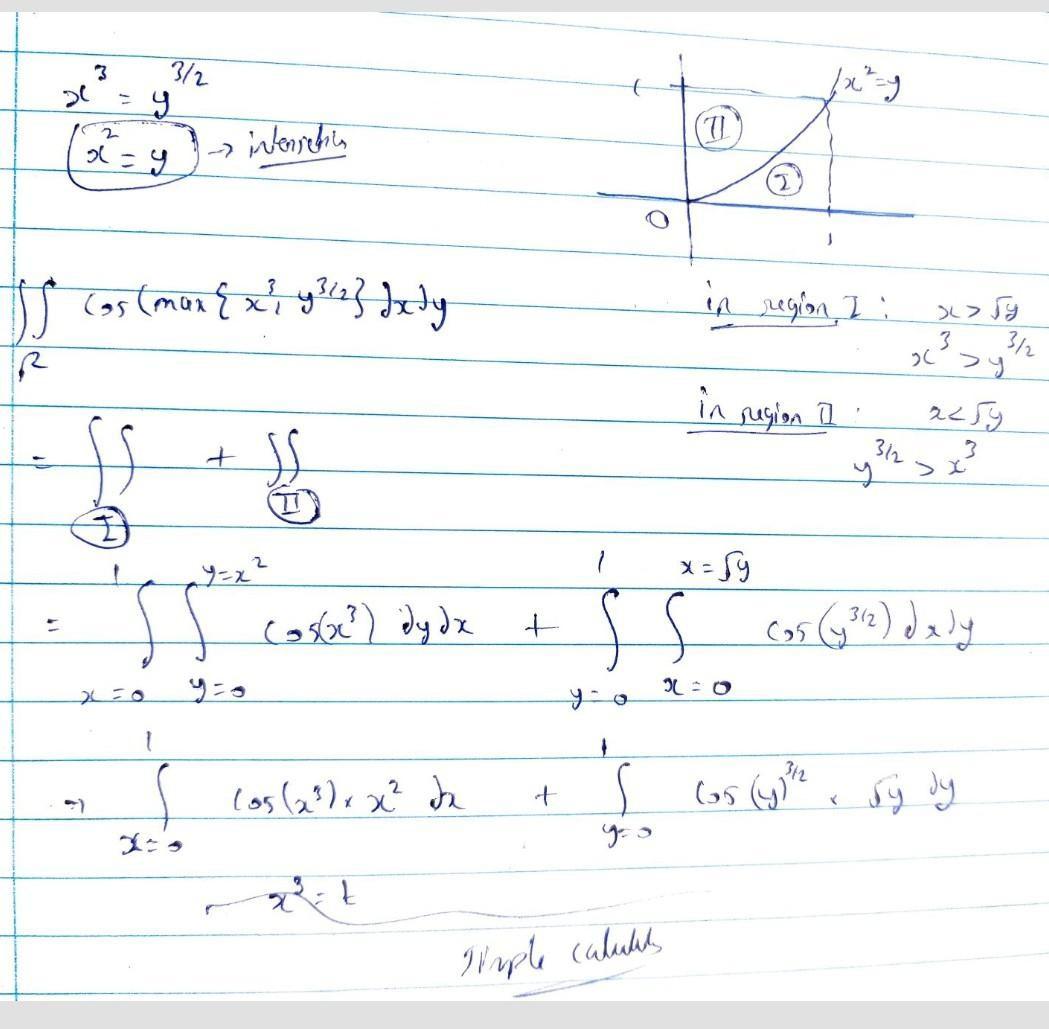 x³ = y^{3/2}
x² = y → intersection
1
x² = y
II
I
O
1
∬_R cos(max{x³, y^{3/2}} dx dy
in region I : x > √y
x³ > y^{3/2}
in region II : x < √y
y^{3/2} > x³
= ∬_I + ∬_II
= ∫_{x=0}^{1} ∫_{y=0}^{y=x²} cos(x³) dy dx + ∫_{y=0}^{1} ∫_{x=0}^{x=√y} cos(y^{3/2}) dx dy
⇒ ∫_{x=0}^{1} cos(x³) × x² dx + ∫_{y=0}^{1} cos(y)^{3/2} × √y dy
x³ = t
simple calculus